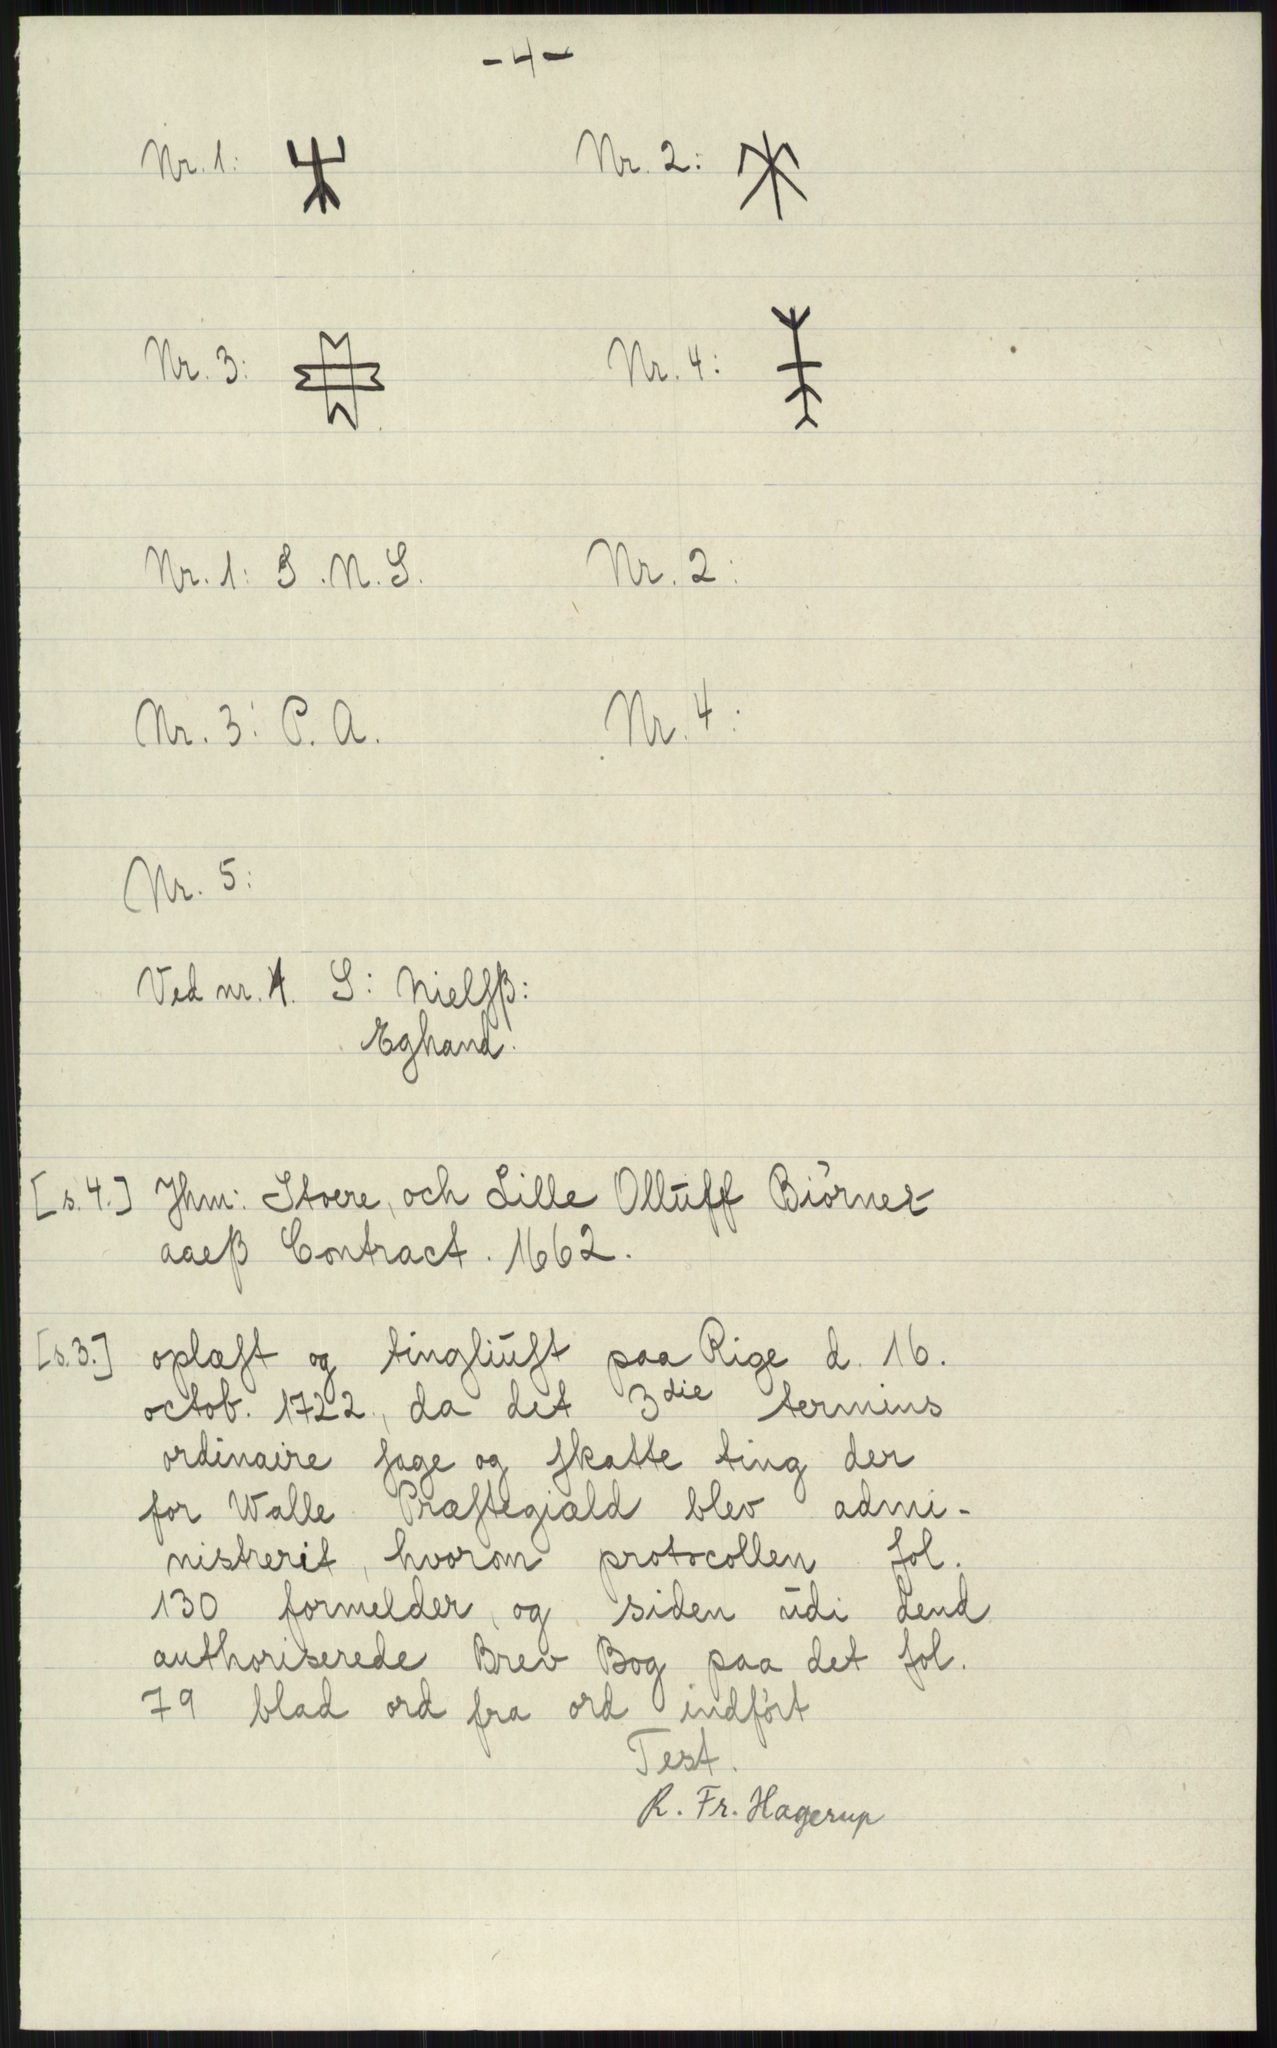 -4-
Nr. 1: Nr. 2:
Nr. 3: Nr. 4:
Nr. 1: S. N. S. Nr. 2:
Nr. 3: P. A. Nr. 4:
Nr. 5:
Ved nr. 1. S: Nielſß:
Eghand.
[s. 4.] Jhm: Stoere, och Lille Ollūff Biörnez
aaeß Contract. 1662.
[s. 3.] oplæſt og tingliūſt paa Rige d. 16.
octob. 1722, da det 3die termins
ordinaire ſage og ſkatte ting der
for Walle Præſtegiæld blev admi-
nistrerit, hvorom protocollen fol.
130 formelder, og siden ūdi dend
authoriserede Brev Bog paa det fol.
79 blad ord fra ord indført
Test.
R. Fr. Hagerup